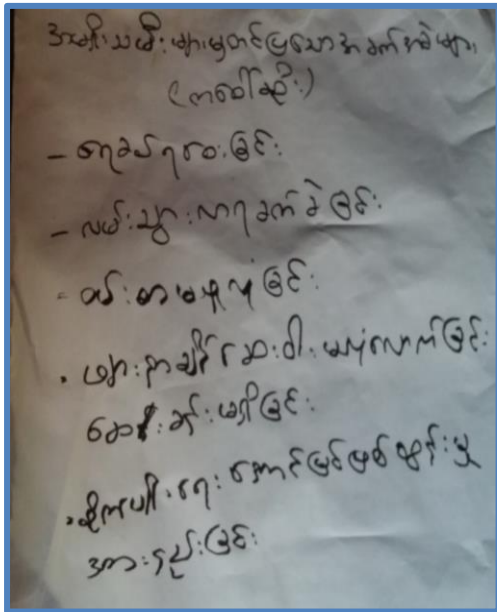 အမျိုးသမီးများမှတင်ပြသောအခက်အခဲများ
(ကဒေါ်ဆိုး)
- ရေခပ်ရဝေးခြင်း
- လမ်းသွားလာရခက်ခဲခြင်း
- ဝမ်းစာမဖူလုံခြင်း
- ဖျားနာချိန်ဆေးဝါးမလုံလောက်ခြင်း
ဆေးခန်းမရှိခြင်း
- စိုက်ပျိုးရေးအောင်မြင်ဖြစ်ထွန်းမှု
အားနည်းခြင်း